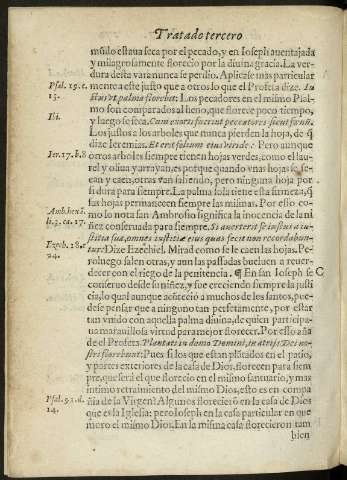 Tratado tercero
nuſido eſtaua ſeca por el pecado, y en Ioſeph auentajada
y milagroſamente florecio por la diuina gracia. La ver
dura deſta vara nunca ſe perdio. Aplicaſe mas particular
Pſal. 15. c. mente a eſte juſto que a otros lo que el Profeta dize. Iu
15. ſtus vt palma florebit: Los pecadores en el miſmo Pſal-
mo ſon comparados al heno, que florece poco tiempo,
Ibi. y luego ſe ſeca. Cum exorti fuerint peccatores ſicut fœnū.
Los juſtos a los arboles que nunca pierden la hoja, de q̃
dize Ieremias. Et erit folium eius viride: Pero aunque
Ier. 17. b. 8 otros arboles ſiempre tienen hojas verdes, como el lau-
rel y oliua y arrayan, es porque quando vnas hojas ſe ſe-
can y caen, otras van ſaliendo, pero ninguna hoja por
ſi dura para ſiempre. La palma ſola tiene eſta firmeza, q̃
ſus hojas permanecen ſiempre las miſmas. Por eſto co-
mo lo nota ſan Ambroſio ſignifica la inocencia de la ni
ñez conſeruada para ſiempre. Si auerterit ſe iuſtus a iu-
ſtitia ſua, omnes iuſtitiæ eius quas fecit non recordabun-
Ezech. 18. c tur: Dize Ezechiel. Mirad como ſe le caen las hojas. Pe-
24. ro luego ſalen otras, y aun las paſſadas bueluen a reuer-
decer con el riego de la penitencia. ¶ En ſan Ioſeph ſe C
conſeruo deſde ſu niñez, y fue creciendo ſiempre la juſti
cia, lo qual aunque acōtecio a muchos de los ſantos, pue-
deſe penſar que a ninguno tan perfectamente, por eſtar
tan vnido con aquella palma diuina, de quien participa-
ua marauilloſa virtud para mejor florecer. Por eſſo aña
de el Profeta. Plantati in domo Domini, in atrijs Dei no-
ſtri florebunt: Pues ſi los que eſtan plātados en el patio,
y partes exteriores de la caſa de Dios, florecen para ſiem
pre, que ſera el que florecio en el miſmo ſantuario, y mas
intimo retraimiento del miſmo Dios, eſto es en compa
Pſal. 91. d. ñia de la Virgen? Algunos florecierō en la caſa de Dios
14. que es la Igleſia: pero Ioſeph en la caſa particular en que
moro el miſmo Dios. En la miſma caſa florecieron tam
bien